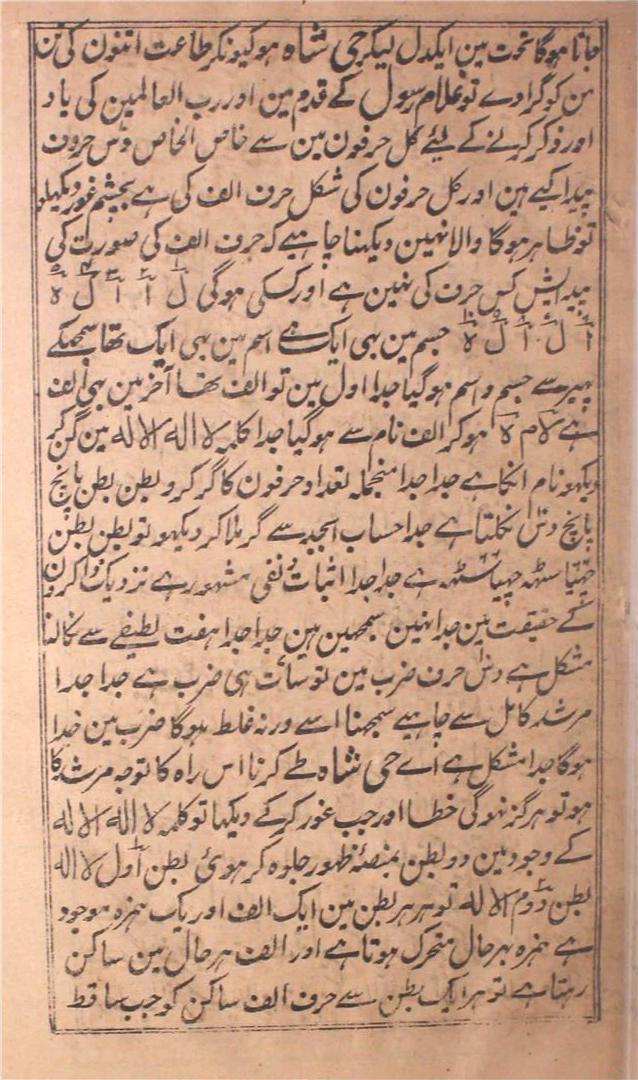 جاتا ہوگا تحت مین ایکدل لیکر جی شاہ ہو کیونکر طاعت انون کی تن
من کو گرا دے تو غلام رسول کے قدم مین اور رب العالمین کی یاد
اور ذکر کرنے کے لیئے کل حرفون مین سے خاص الخاص دس حروف
پیدا کیے ہین اور کل حرفون کی شکل حرف الف کی ہے بچشم غور دیکہلو
تو ظاہر ہوگا والا نہین دیکہنا چاہیے کہ حرف الف کی صورت کی
پیدایش کس حرف کی نہین ہے اور کسکی ہوگی ل ا ا ل ہ
ا ل ا ل ہ جسم مین بہی ایک ہے اسم مین بہی ایک تہا سمجہیکے
پہیر سے جسم و اسم ہوگیا جدا اول مین تو الف تہا آخر مین بہی الف
ہے لام ہ ہوکر الف نام سے ہوگیا جدا کلمہ لا الہ الا للہ مین گن کر
دیکہو نام انکا ہے جدا جدا منجملہ تعداد حرفون کا گر کرو بطن بطن پانچ
پانچ دس نکلتا ہے جدا حساب ابجد سے گر ملا کر دیکہو تو بطن بطن
چہیاسٹہہ چہیاسٹہہ ہے جدا جدا اثبات و نفی مشہور ہے نزدیک ذاکرون
کے حقیقت مین جدا نہین سمجہین ہین جدا جدا ہفت لطیفے سے نکالنا
مشکل ہے دس حرف ضرب مین تو سات ہی ضرب ہے جدا جدا
مرشد کامل سے چاہیے سمجہنا اسے ورنہ غلط ہوگا ضرب مین خدا
ہوگا جدا مشکل ہے اے جی شاہ طے کرنا اس راہ کا توجہ مرشد کا
ہو تو ہرگز نہوگی خطا اور جب غور کر کے دیکہا تو کلمہ لا الہ الا للہ
کے وجود مین دو بطن بمنصۂ ظہور جلوہ گر ہوئی بطن اول لا الہ
بطن دوم الا للہ تو ہر ہر بطن مین ایک الف اور یک ہمزہ موجود
ہے ہمزہ بہر حال متحرک ہوتا ہے اور الف ہر حال مین ساکن
رہتا ہے تو ہر ایک بطن سے حرف الف ساکن کو جب ساقط